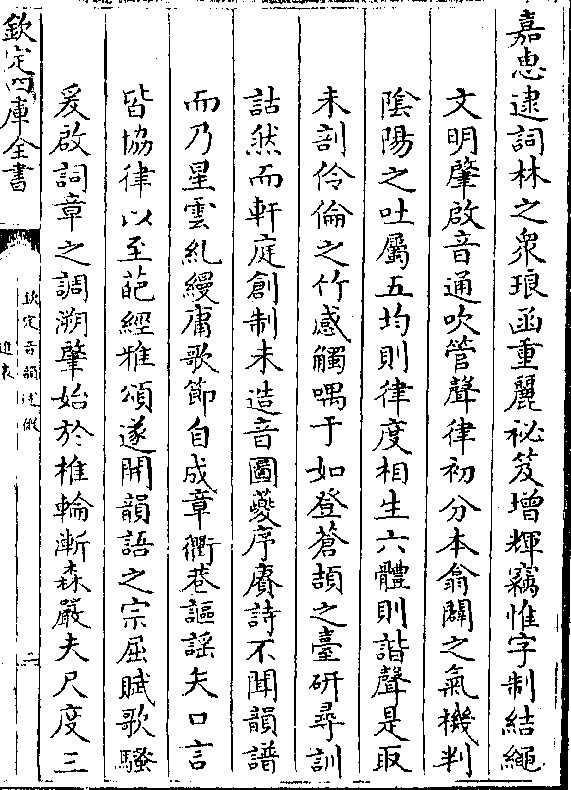 嘉惠逮詞林之衆琅函重麗祕笈增輝竊惟字制結繩
文明肇啟音通吹管聲律初分本翕闢之氣機判
陰陽之吐屬五均則律度相生六體則諧聲是取
未剖伶倫之竹感觸喁于如登蒼頡之臺研尋訓
詁然而軒庭創制未造音圖夔序賡詩不聞韻譜
而乃星雲糺縵庸歌節自成章衢巷謳謠矢口言
皆協律以至葩經雅頌遂開韻語之宗屈賦歌騷
爰啟詞章之調溯肇始於椎輪漸森嚴夫尺度三
欽定四庫全書
欽定音韻述微
進表
二